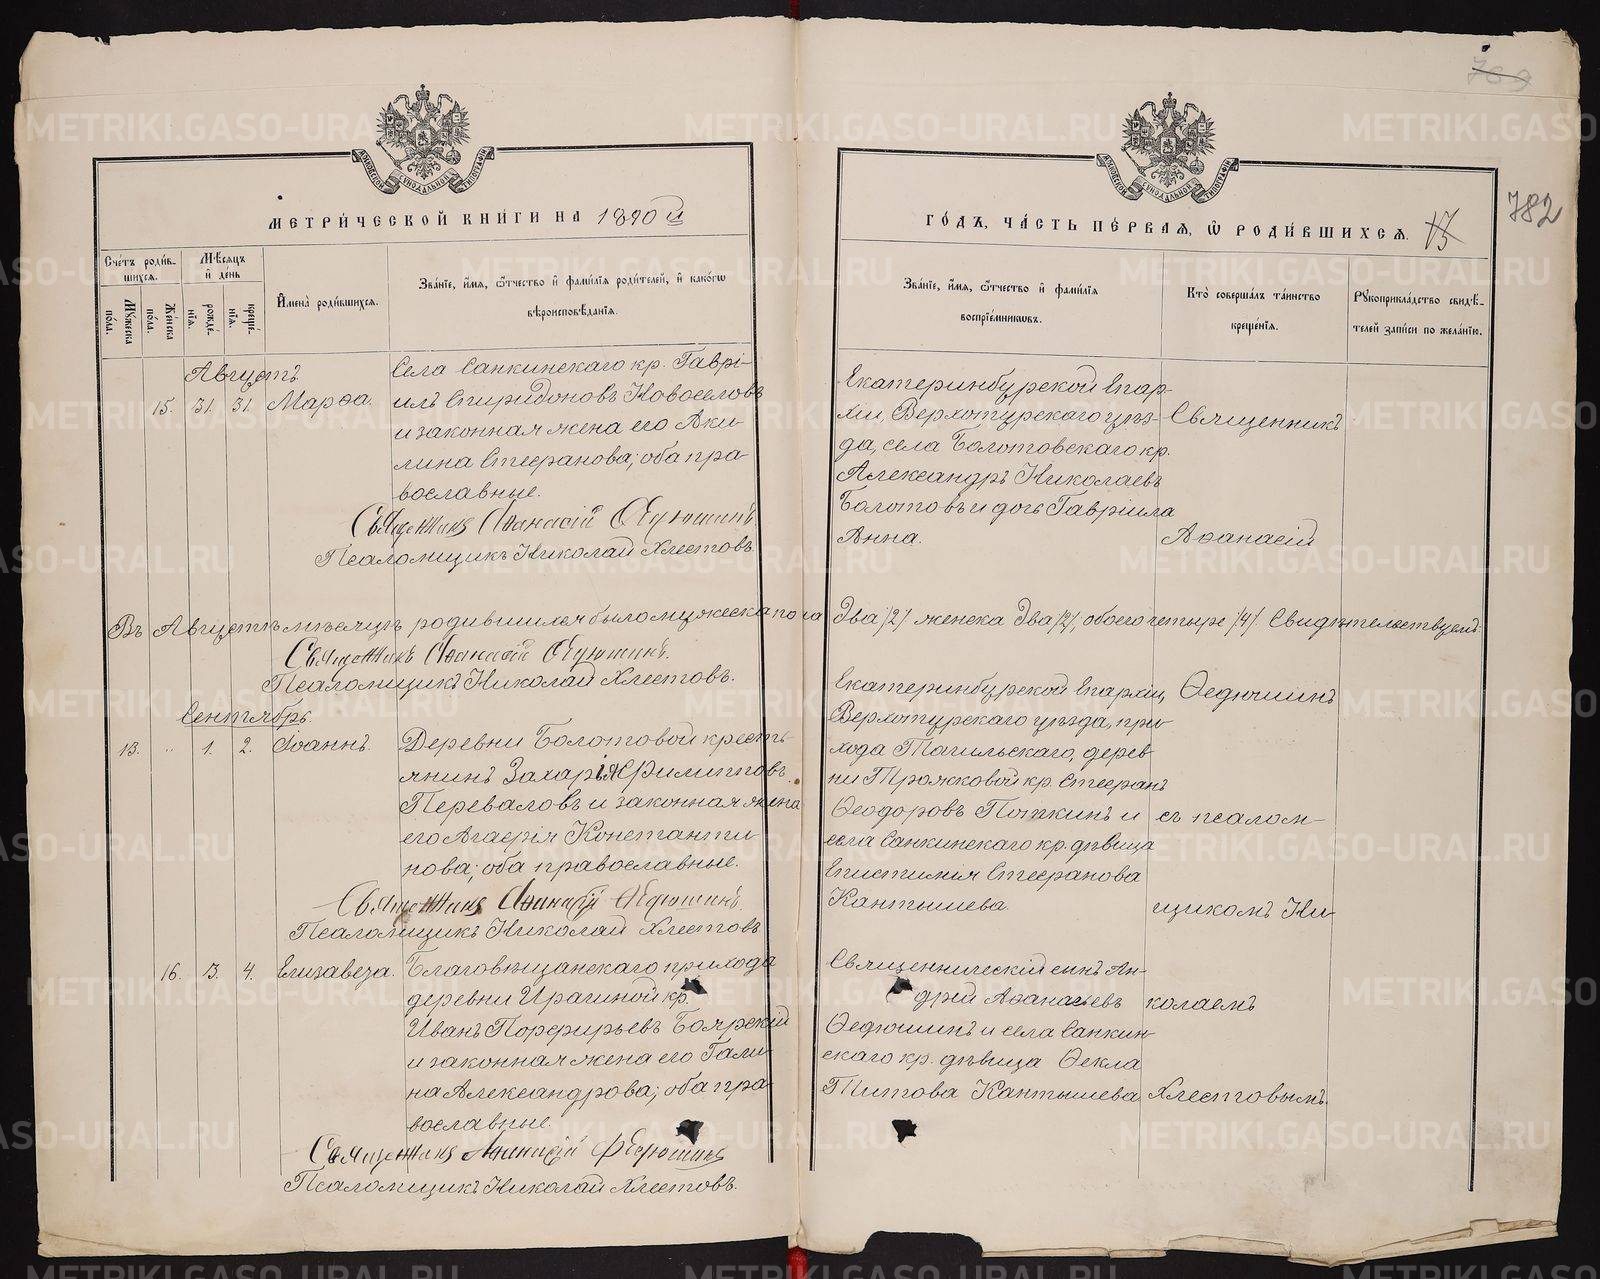 769
782
МЕТРИ́ЧЕСКОЙ КНИ́ГИ НА 1890й
ГО́ДЪ, ЧА́СТЬ ПЕ́РВАЯ, Ѿ РОДИ́ВШИХСЯ.
Сче́тъ роди́в-
шихся.
Мѣ́сяцъ
и҆ де́нь
Мꙋжеска
по́ла.
Же́нска
по́ла.
рожде́-
нїя.
креще́-
нїя.
И҆мена̀ роди́вшихся.
Зва́нїе, и҆́мя, ѻ҆́тчество и҆ фами́лїя роди́телей, и҆ како́гѡ
вѣроисповѣ́данїя.
Зва́нїе, и҆́мя, ѻ҆́тчество и҆ фами́лїя
воспрїе́мникѡвъ.
Кто̀ соверша́лъ та́инство
креще́нїя.
Рꙋкоприкла́дство свидѣ́-
телей за́писи по жела́нїю.
Августъ
15. 31. 31. Марѳа.
Села Санкинскаго кр. Гаврі-
илъ Спиридоновъ Новоселовъ
и законная жена его Аки-
лина Стефанова; оба пра-
вославные.
Священникъ Аѳанасій Ѳедюшинъ
Псаломщикъ Николай Хлестовъ.
Екатеринбургской Епар-
хіи, Верхотурскаго уѣз-
да, села Болотовскаго кр.
Александръ Николаевъ
Болотовъ и дочь Гавріила
Анна.
Священникъ
Аѳанасій
Въ Августѣ мѣсяцѣ родившихся было мужеска пола два /2/ женска два /2/, обоего четыре /4/. Свидѣтельствуемъ:
Священникъ Аѳанасій Ѳедюшинъ.
Псаломщикъ Николай Хлестовъ.
Сентябрь.
13. " 1. 2. Іоаннъ.
Деревни Болотовой кресть-
янинъ Захарія Филипповъ
Переваловъ и законная жена
его Агафія Константи-
нова; оба православные.
Священникъ Аѳанасій Ѳедюшинъ.
Псаломщикъ Николай Хлестовъ
Екатеринбургской Епархіи,
Верхотурскаго уѣзда, при-
хода Тагильскаго, дерев-
ни Трошковой кр. Стефанъ
Ѳеодоровъ и
села Санкинскаго кр. дѣвица
Епистимія Стефанова
Кантышева.
Ѳедюшинъ
съ псалом-
щикомъ Ни-
16. 3. 4. Елизавета.
Благовѣщанскаго прихода
деревни Ирагиной кр.
Иванъ Порфирьевъ Боярскій
и законная жена его Гали-
на Александрова; оба пра-
вославные.
Священникъ Аѳанасій Ѳедюшинъ
Псаломщикъ Николай Хлестовъ.
Священническій сынъ Ан-
дрей Аѳанасьевъ
Ѳедюшинъ и села Санкин-
скаго кр. дѣвица Ѳекла
Титова Кантышева
колаемъ
Хлестовымъ.